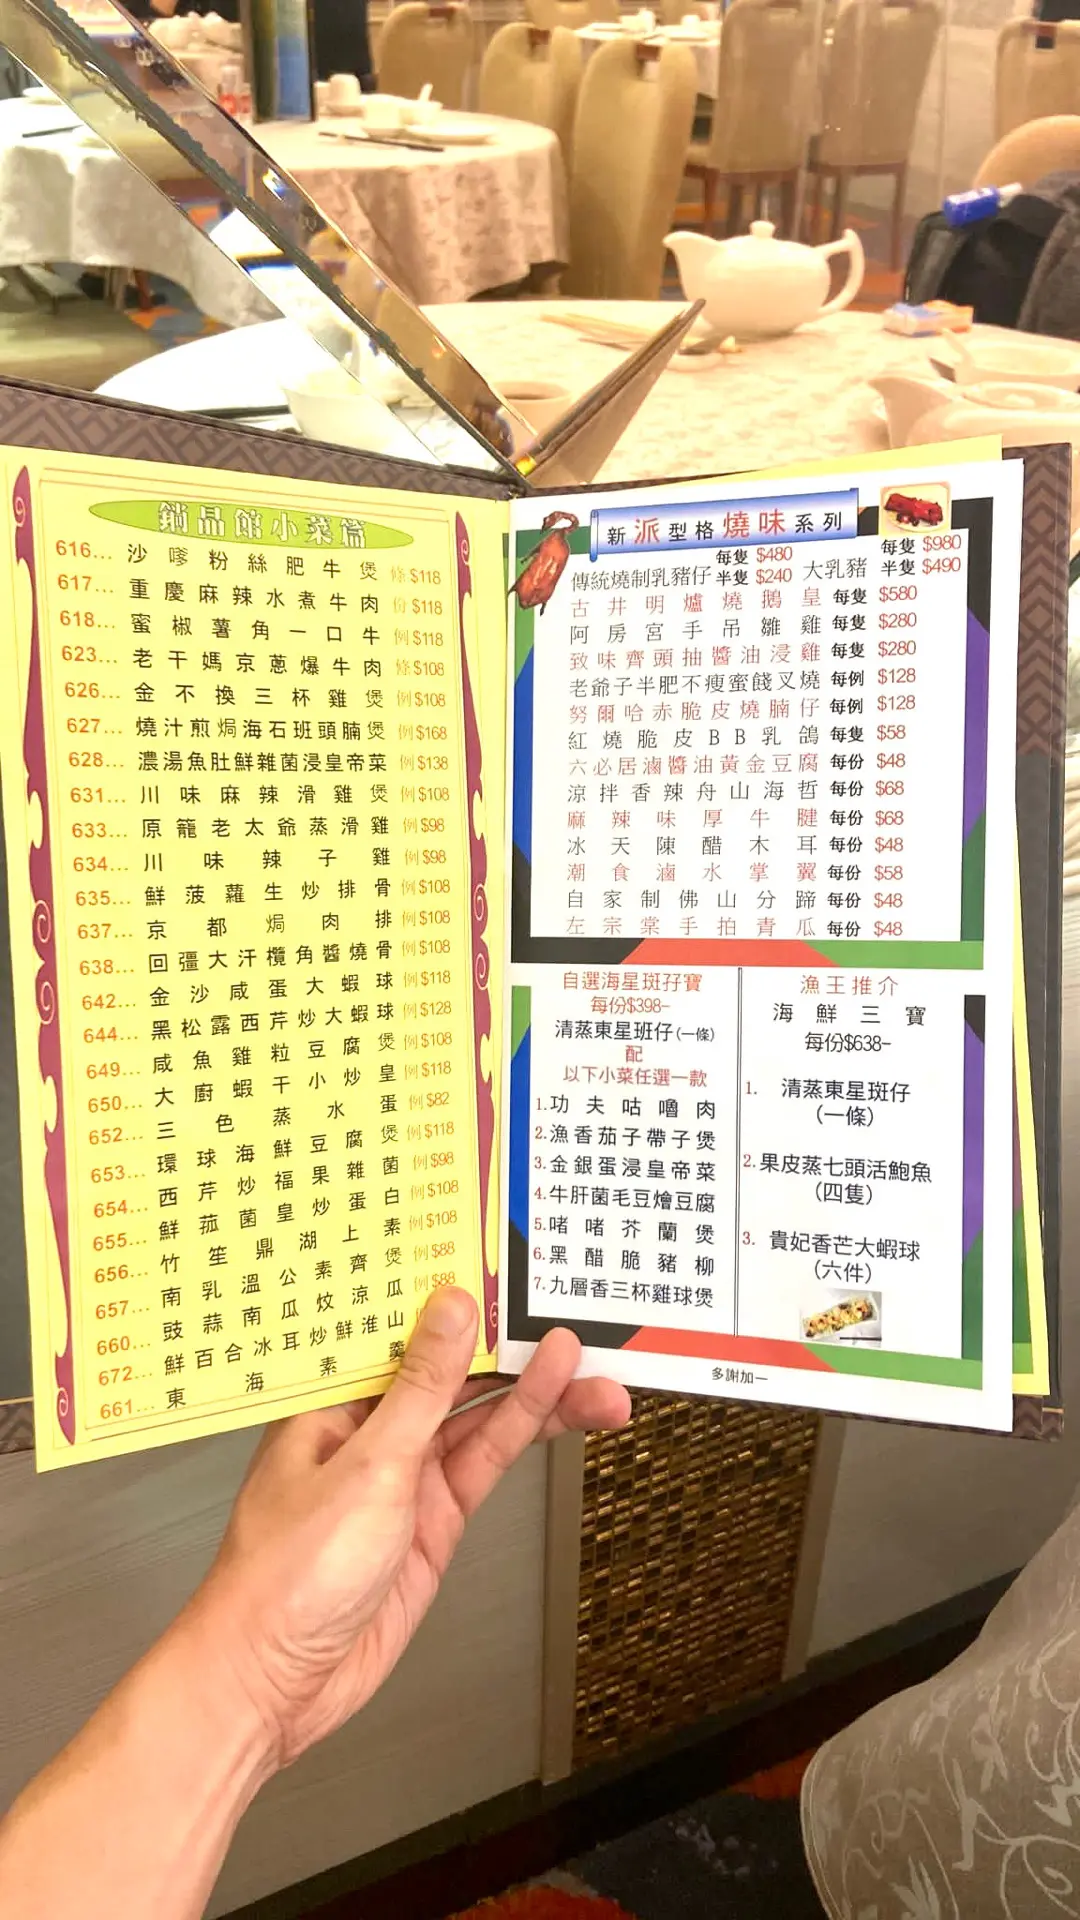 鎖品館小菜篇
616... 沙嗲粉絲肥牛煲 條$118
617... 重慶麻辣水煮牛肉 份$118
618... 蜜椒薯角一口牛 例$118
623... 老干媽京蔥爆牛肉 條$108
626... 金不換三杯雞煲 例$108
627... 燒汁煎焗海石班頭腩煲 例$168
628... 濃湯魚肚鮮雜菌浸皇帝菜 例$138
631... 川味麻辣滑雞煲 例$108
633... 原籠老太爺蒸滑雞 例$98
634... 川味辣子雞 例$98
635... 鮮菠蘿生炒排骨 例$108
637... 京都焗肉排 例$108
638... 回彊大汗欖角醬燒骨 例$108
642... 金沙咸蛋大蝦球 例$118
644... 黑松露西芹炒大蝦球 例$128
649... 咸魚雞粒豆腐煲 例$108
650... 大廚蝦干小炒皇 例$118
652... 三色蒸水蛋 例$82
653... 環球海鮮豆腐煲 例$118
654... 西芹炒福果雜菌 例$98
655... 鮮菰菌皇炒蛋白 例$108
656... 竹笙鼎湖上素 例$108
657... 南乳溫公素齊煲 例$88
660... 豉蒜南瓜炆涼瓜 例$88
672... 鮮百合冰耳炒鮮淮山
661... 東海素羹
新派型格燒味系列
傳統燒制乳豬仔 每隻 $480 半隻 $240 大乳豬 每隻 $980 半隻 $490
古井明爐燒鵝皇 每隻 $580
阿房宮手吊雛雞 每隻 $280
致味齊頭抽醬油浸雞 每隻 $280
老爺子半肥不瘦蜜餞叉燒 每例 $128
努爾哈赤脆皮燒腩仔 每例 $128
紅燒脆皮BB乳鴿 每隻 $58
六必居滷醬油黃金豆腐 每份 $48
涼拌香辣舟山海哲 每份 $68
麻辣味厚牛腱 每份 $68
冰天陳醋木耳 每份 $48
潮食滷水掌翼 每份 $58
自家制佛山分蹄 每份 $48
左宗棠手拍青瓜 每份 $48
自選海星斑孖寶
每份$398-
清蒸東星斑仔(一條)
配
以下小菜任選一款
1.功夫咕嚕肉
2.漁香茄子帶子煲
3.金銀蛋浸皇帝菜
4.牛肝菌毛豆燴豆腐
5.啫啫芥蘭煲
6.黑醋脆豬柳
7.九層香三杯雞球煲
漁王推介
海鮮三寶
每份$638-
1. 清蒸東星斑仔
(一條)
2.果皮蒸七頭活鮑魚
(四隻)
3. 貴妃香芒大蝦球
(六件)
多謝加一